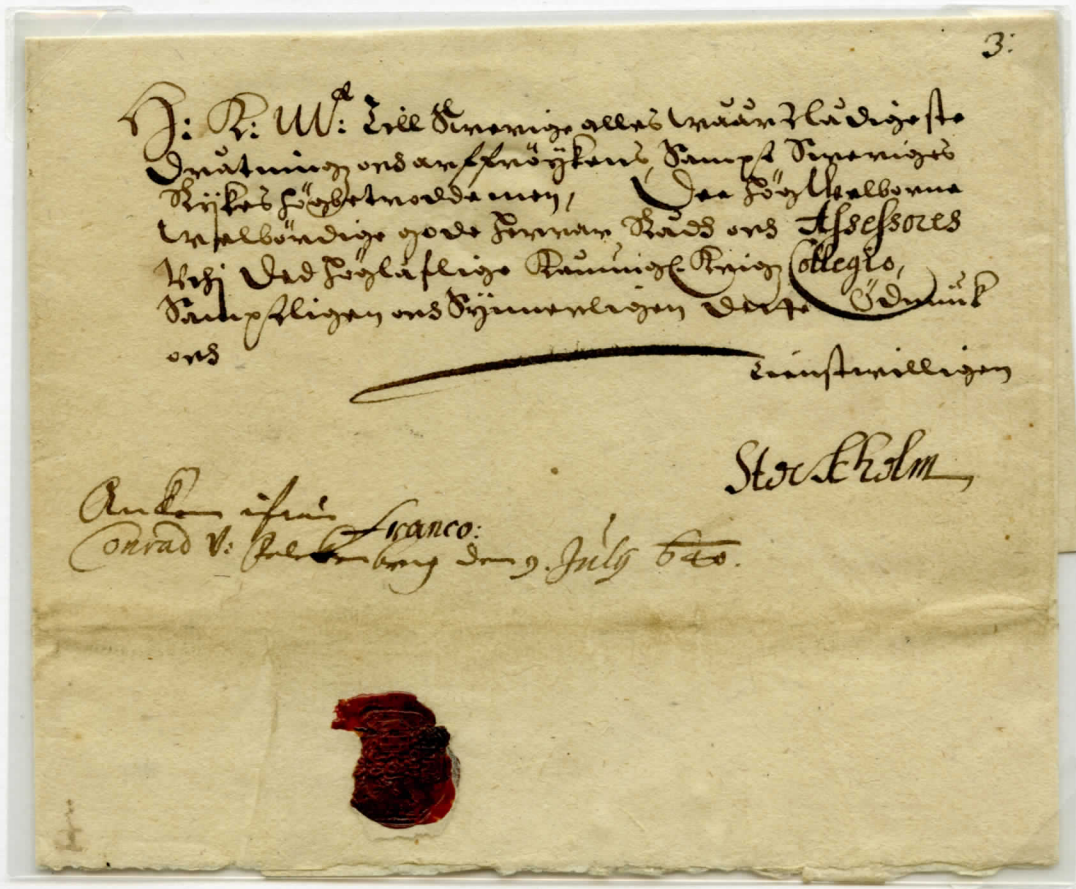 3:
H: K: Mtt: Till Swerige alles wåår Nådigeste
Dråtning och arffröÿkens, Sampt Sweriges
Rijkes högbetrodde men, Dee högWelborne
Welbördige gode Herrar Rådh och Assessores
Uthj Ded höglåflige Kåning: Krigz Collegio,
Sampteligen och Synnerligen dette Ödmiuk
och
Tienstwilligen
Stockholm
Ankom ifrån
Franco:
Conrad V: Falckenberg den 9. July 640.